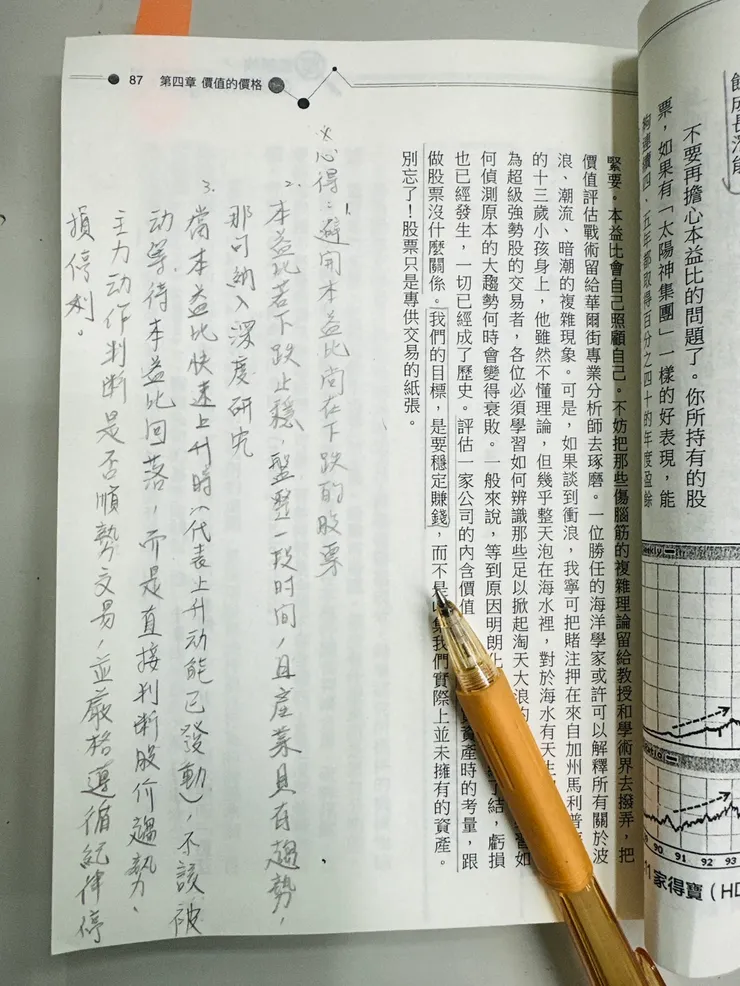 成長潛能
不要再擔心本益比的問題了。你所持有的股
票,如果有「太陽神集團」一樣的好表現,能
夠連續四、五年都取得百分之四十的年度盈餘
90 91 92 93
家得寶(HD
87 第四章 價值的價格
緊要。本益比會自己照顧自己。不妨把那些傷腦筋的複雜理論留給教授和學術界去撥弄,把
價值評估戰術留給華爾街專業分析師去琢磨。一位勝任的海洋學家或許可以解釋所有關於波
浪、潮流、暗潮的複雜現象。可是,如果談到衝浪,我寧可把賭注押在來自加州馬利普
的十三歲小孩身上,他雖然不懂理論,但幾乎整天泡在海水裡,對於海水有天生
為超級強勢股的交易者,各位必須學習如何辨識那些足以掀起淘天大浪的 習如
何偵測原本的大趨勢何時會變得衰敗。一般來說,等到原因明朗化 了結,虧損
也已經發生,一切已經成了歷史。評估一家公司的內含價值 資產時的考量,跟
做股票沒什麼關係。我們的目標,是要穩定賺錢,而不是 集我們實際上並未擁有的資產。
別忘了!股票只是專供交易的紙張。
※心得:1.避開本益比尚在下跌的股票
2.本益比若下跌止穩,盤整一段时间,且產業具有趨勢,
那可納入深度研究
3.當本益比快速上升時(代表上升动能已發動),不該被
动等待本益比回落,而是直接判断股价趨勢、
主力动作判断是否順勢交易,並嚴格遵循紀律停
損停利。